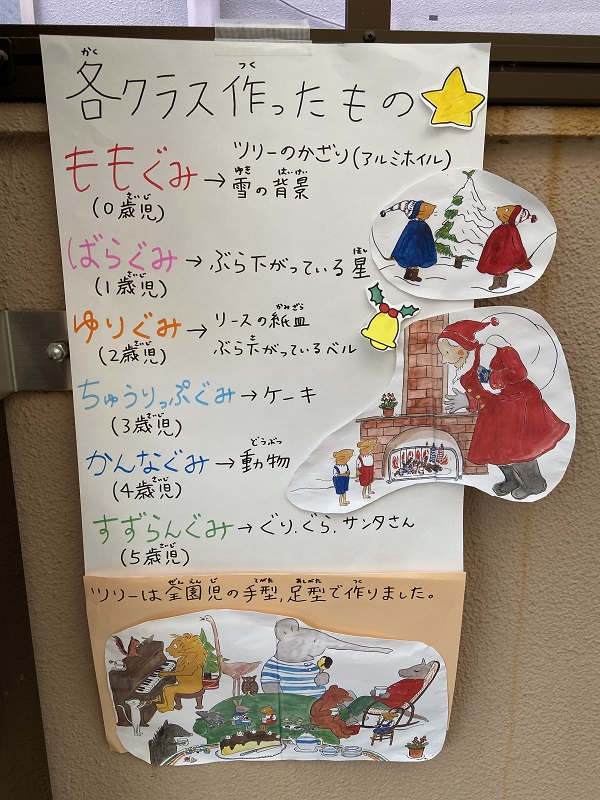 各クラス作ったもの
ももぐみ→ツリーのかざり(アルミホイル)
雪の背景
(0歳児)
ばらぐみ→ぶら下がっている星
(1歳児)
ゆりぐみ→リースの紙皿
ぶら下がっているベル
(2歳児)
ちゅうりっぷぐみ→ケーキ
(3歳児)
かんなぐみ→動物
(4歳児)
すずらんぐみ→ぐり、ぐら、サンタさん
(5歳児)
ツリーは全園児の手型、足型で作りました。